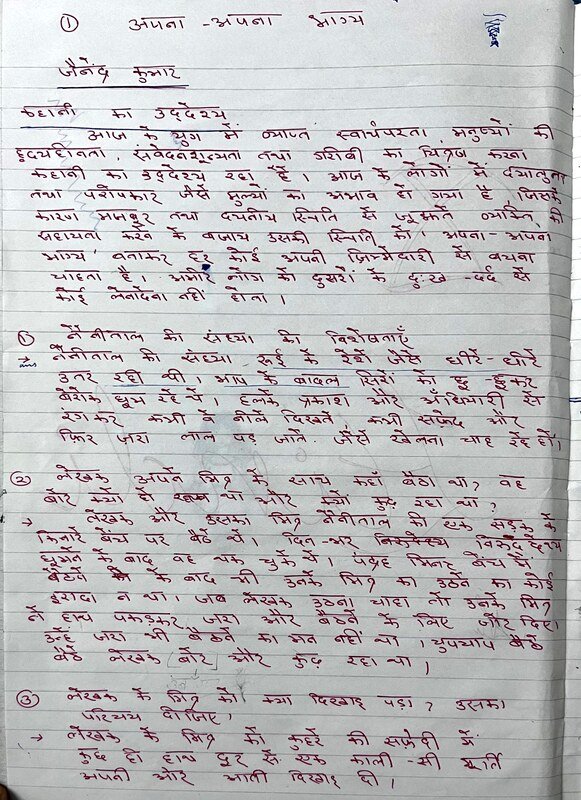 ① अपना - अपना भाग्य
जैनेंद्र कुमार
कहानी का उद्देश्य
आज के युग में व्याप्त स्वार्थपरता, मनुष्यों की
हृदयहीनता, संवेदनशून्यता तथा गरीबी का चित्रण करना
कहानी का उद्देश्य रहा है। आज के लोगों में दयालुता
तथा परोपकार जैसे मूल्यों का अभाव हो गया है जिसके
कारण मजबूर तथा दयनीय स्थिति से जूझते व्यक्ति की
सहायता करने के बजाय उसकी स्थिति को 'अपना - अपना
भाग्य' बताकर हर कोई अपनी जिम्मेदारी से बचना
चाहता है। अमीर लोग को दुसरों के दुःख - दर्द से
कोई लेनादेना नहीं होता।
① नैनीताल की संध्या की विशेषताएँ
→ नैनीताल की संध्या रूई के रेशे जैसे धीरे - धीरे
ans उतर रही थी। भाप के बादल सिरों को छू - छूकर
बेरोक घूम रहे थे। हलके प्रकाश और अँधियारी से
रंगकर कभी वे नीले दिखते कभी सफ़ेद और
फिर जरा लाल पड़ जाते जैसे खेलना चाह रहे हों।
② लेखक अपने मित्र के साथ कहाँ बैठा था? वह
बोर क्यों हो रहा था और क्यों कुढ़ रहा था?
→ लेखक और उसका मित्र नैनीताल की एक सड़क के
किनारे बेंच पर बैठे थे। दिन-भर निरुद्देश्य
घूमने के बाद वह थक चुके थे। पंद्रह मिनट बेंच पे
बैठने के बाद भी उनके मित्र का उठने का कोई
इरादा न था। जब लेखक उठना चाहा तो उनके मित्र
ने हाथ पकड़कर जरा और बैठने के लिए जोर दिए।
उन्हें जरा भी बैठने का मन नहीं था। चुपचाप बैठे
बैठे लेखक बोर और कुढ़ रहा था।
③ लेखक के मित्र को क्या दिखाई पड़ा? उसका
परिचय दीजिए।
→ लेखक के मित्र को कुहरे की सफ़ेदी में
कुछ ही हाथ दूर से एक काली-सी मूर्ति
अपनी ओर आती दिखाई दी।